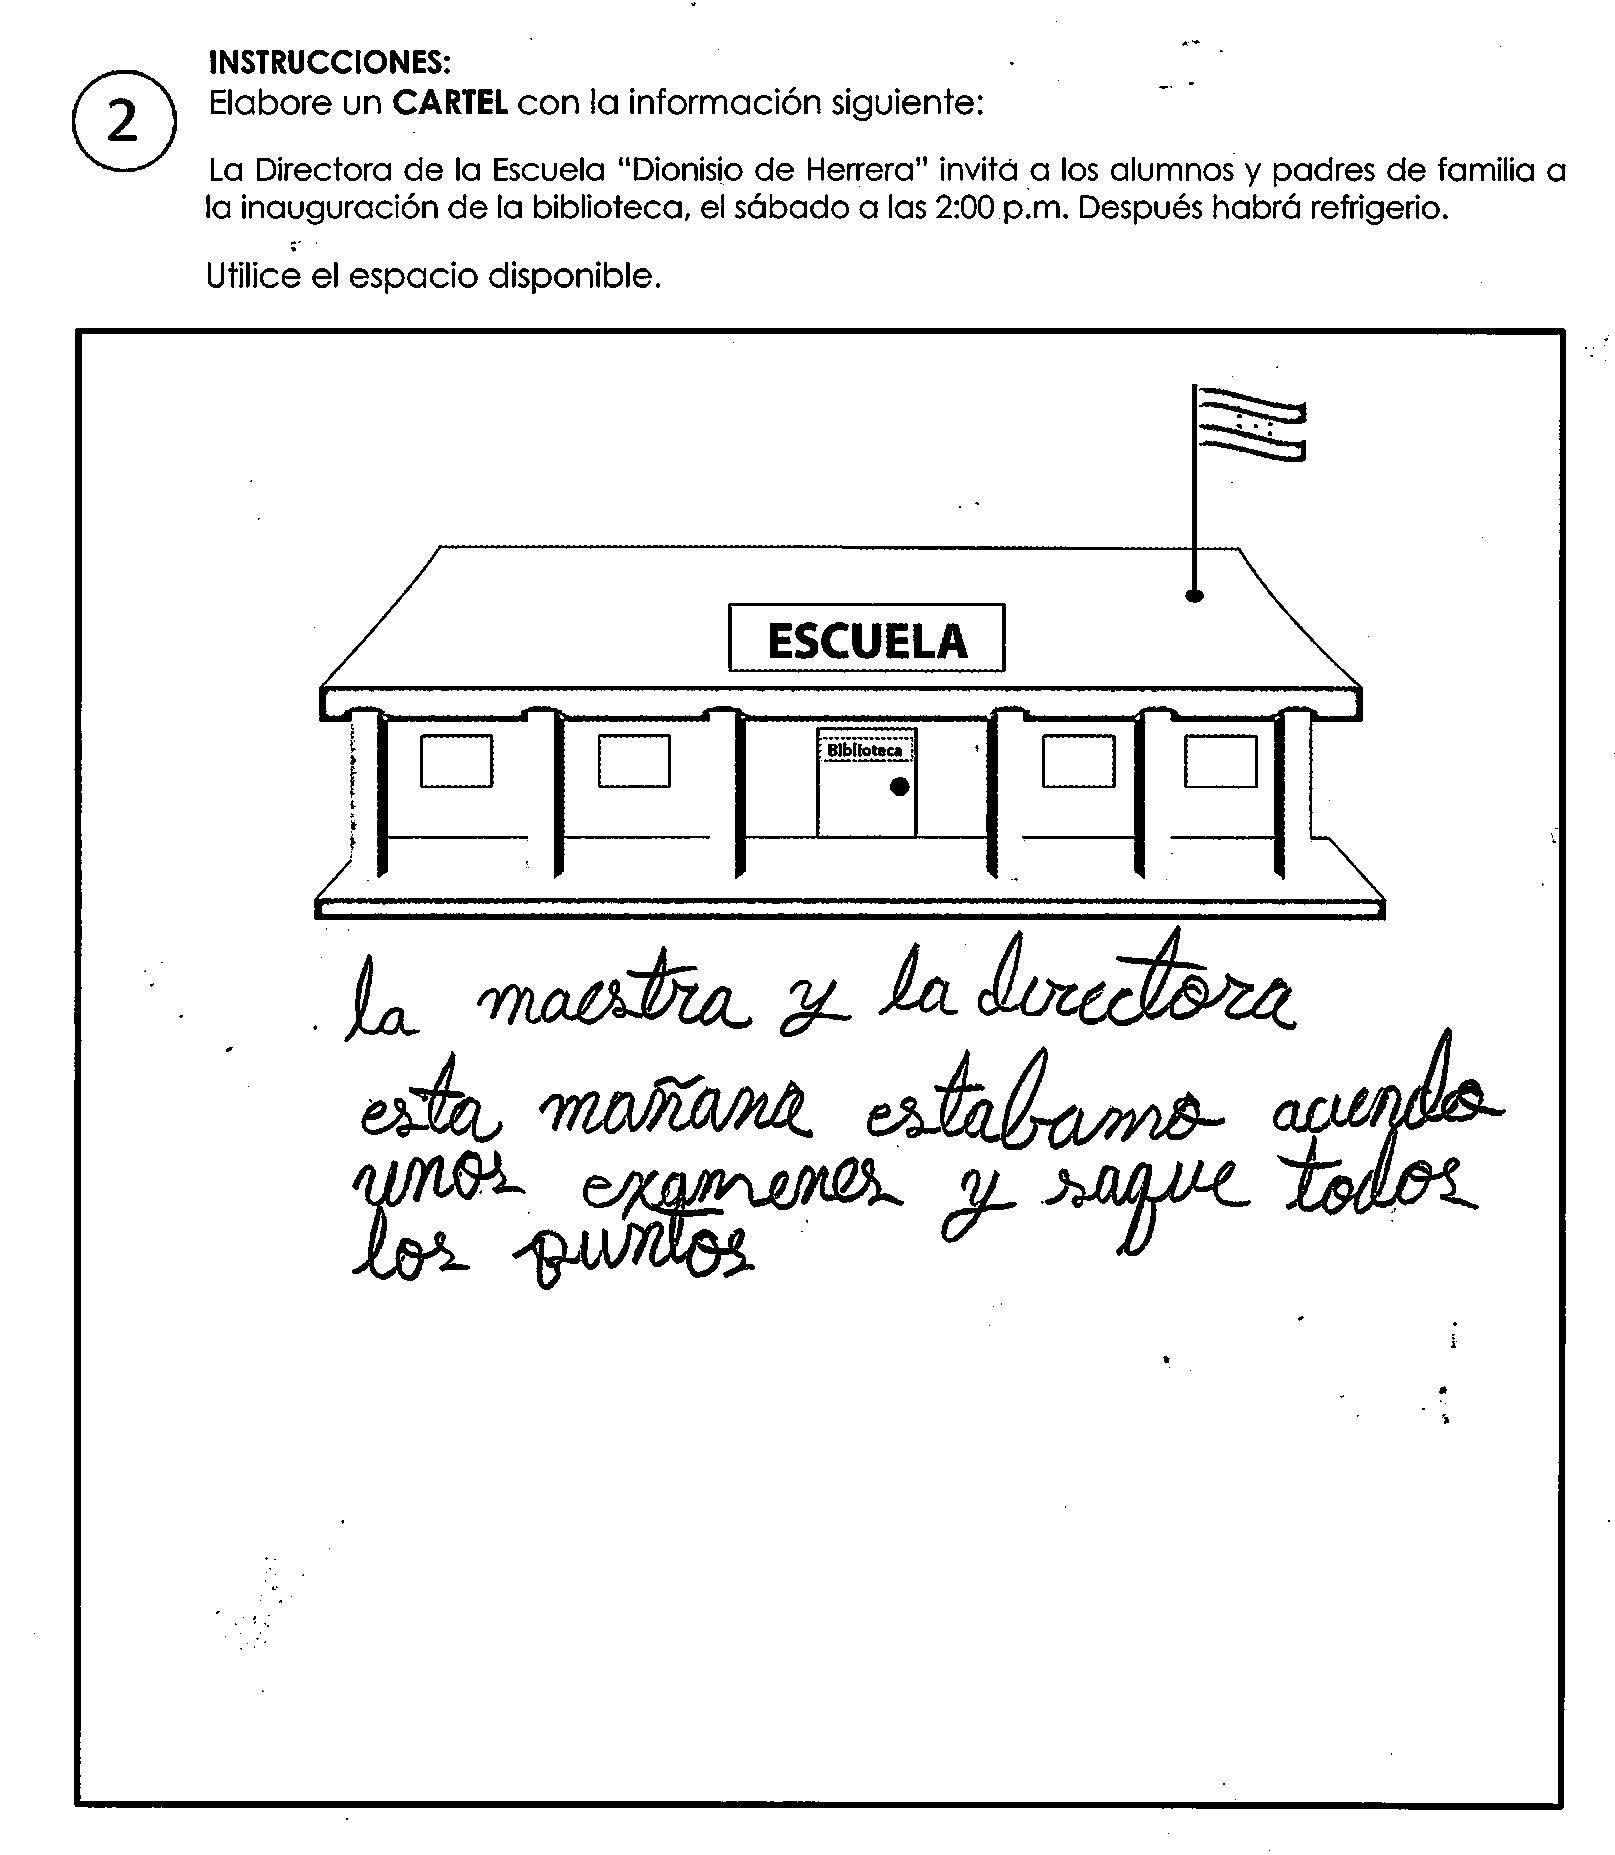 INSTRUCCIONES:
2
Elabore un CARTEL con la información siguiente:
La Directora de la Escuela "Dionisio de Herrera" invita a los alumnos y padres de familia a
la inauguración de la biblioteca, el sábado a las 2:00 p.m. Después habrá refrigerio.
Utilice el espacio disponible.
ESCUELA
Biblioteca
la maestra y la directora
esta mañana estabamo aciendo
unos examenes y saque todos
los puntos